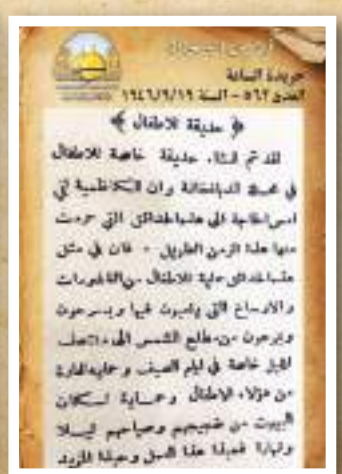 جريدة الساعة
العدد ٥٦٢ - السنة ١٩٤٦/٩/١٩
﴿ حديقة الاطفال ﴾
لقد تم انشاء حديقة خاصة للاطفال
في محلة الدباغخانة وان الكاظمية لفي
امس الحاجة الى هذه الحدائق التي حرمت
منها هذا الزمن الطويل - فان في مثل
هذه الحدائق حماية للاطفال من القاذورات
والاوساخ التي يلعبون فيها ويسرحون
ويمرحون من مطلع الشمس الى منتصف
الليل خاصة في ايام الصيف وحماية للمارة
من هؤلاء الاطفال وحماية لسكان
البيوت من ضجيجهم وصياحهم ليلا
ونهارا فحبذا هذا العمل وحبذا المزيد